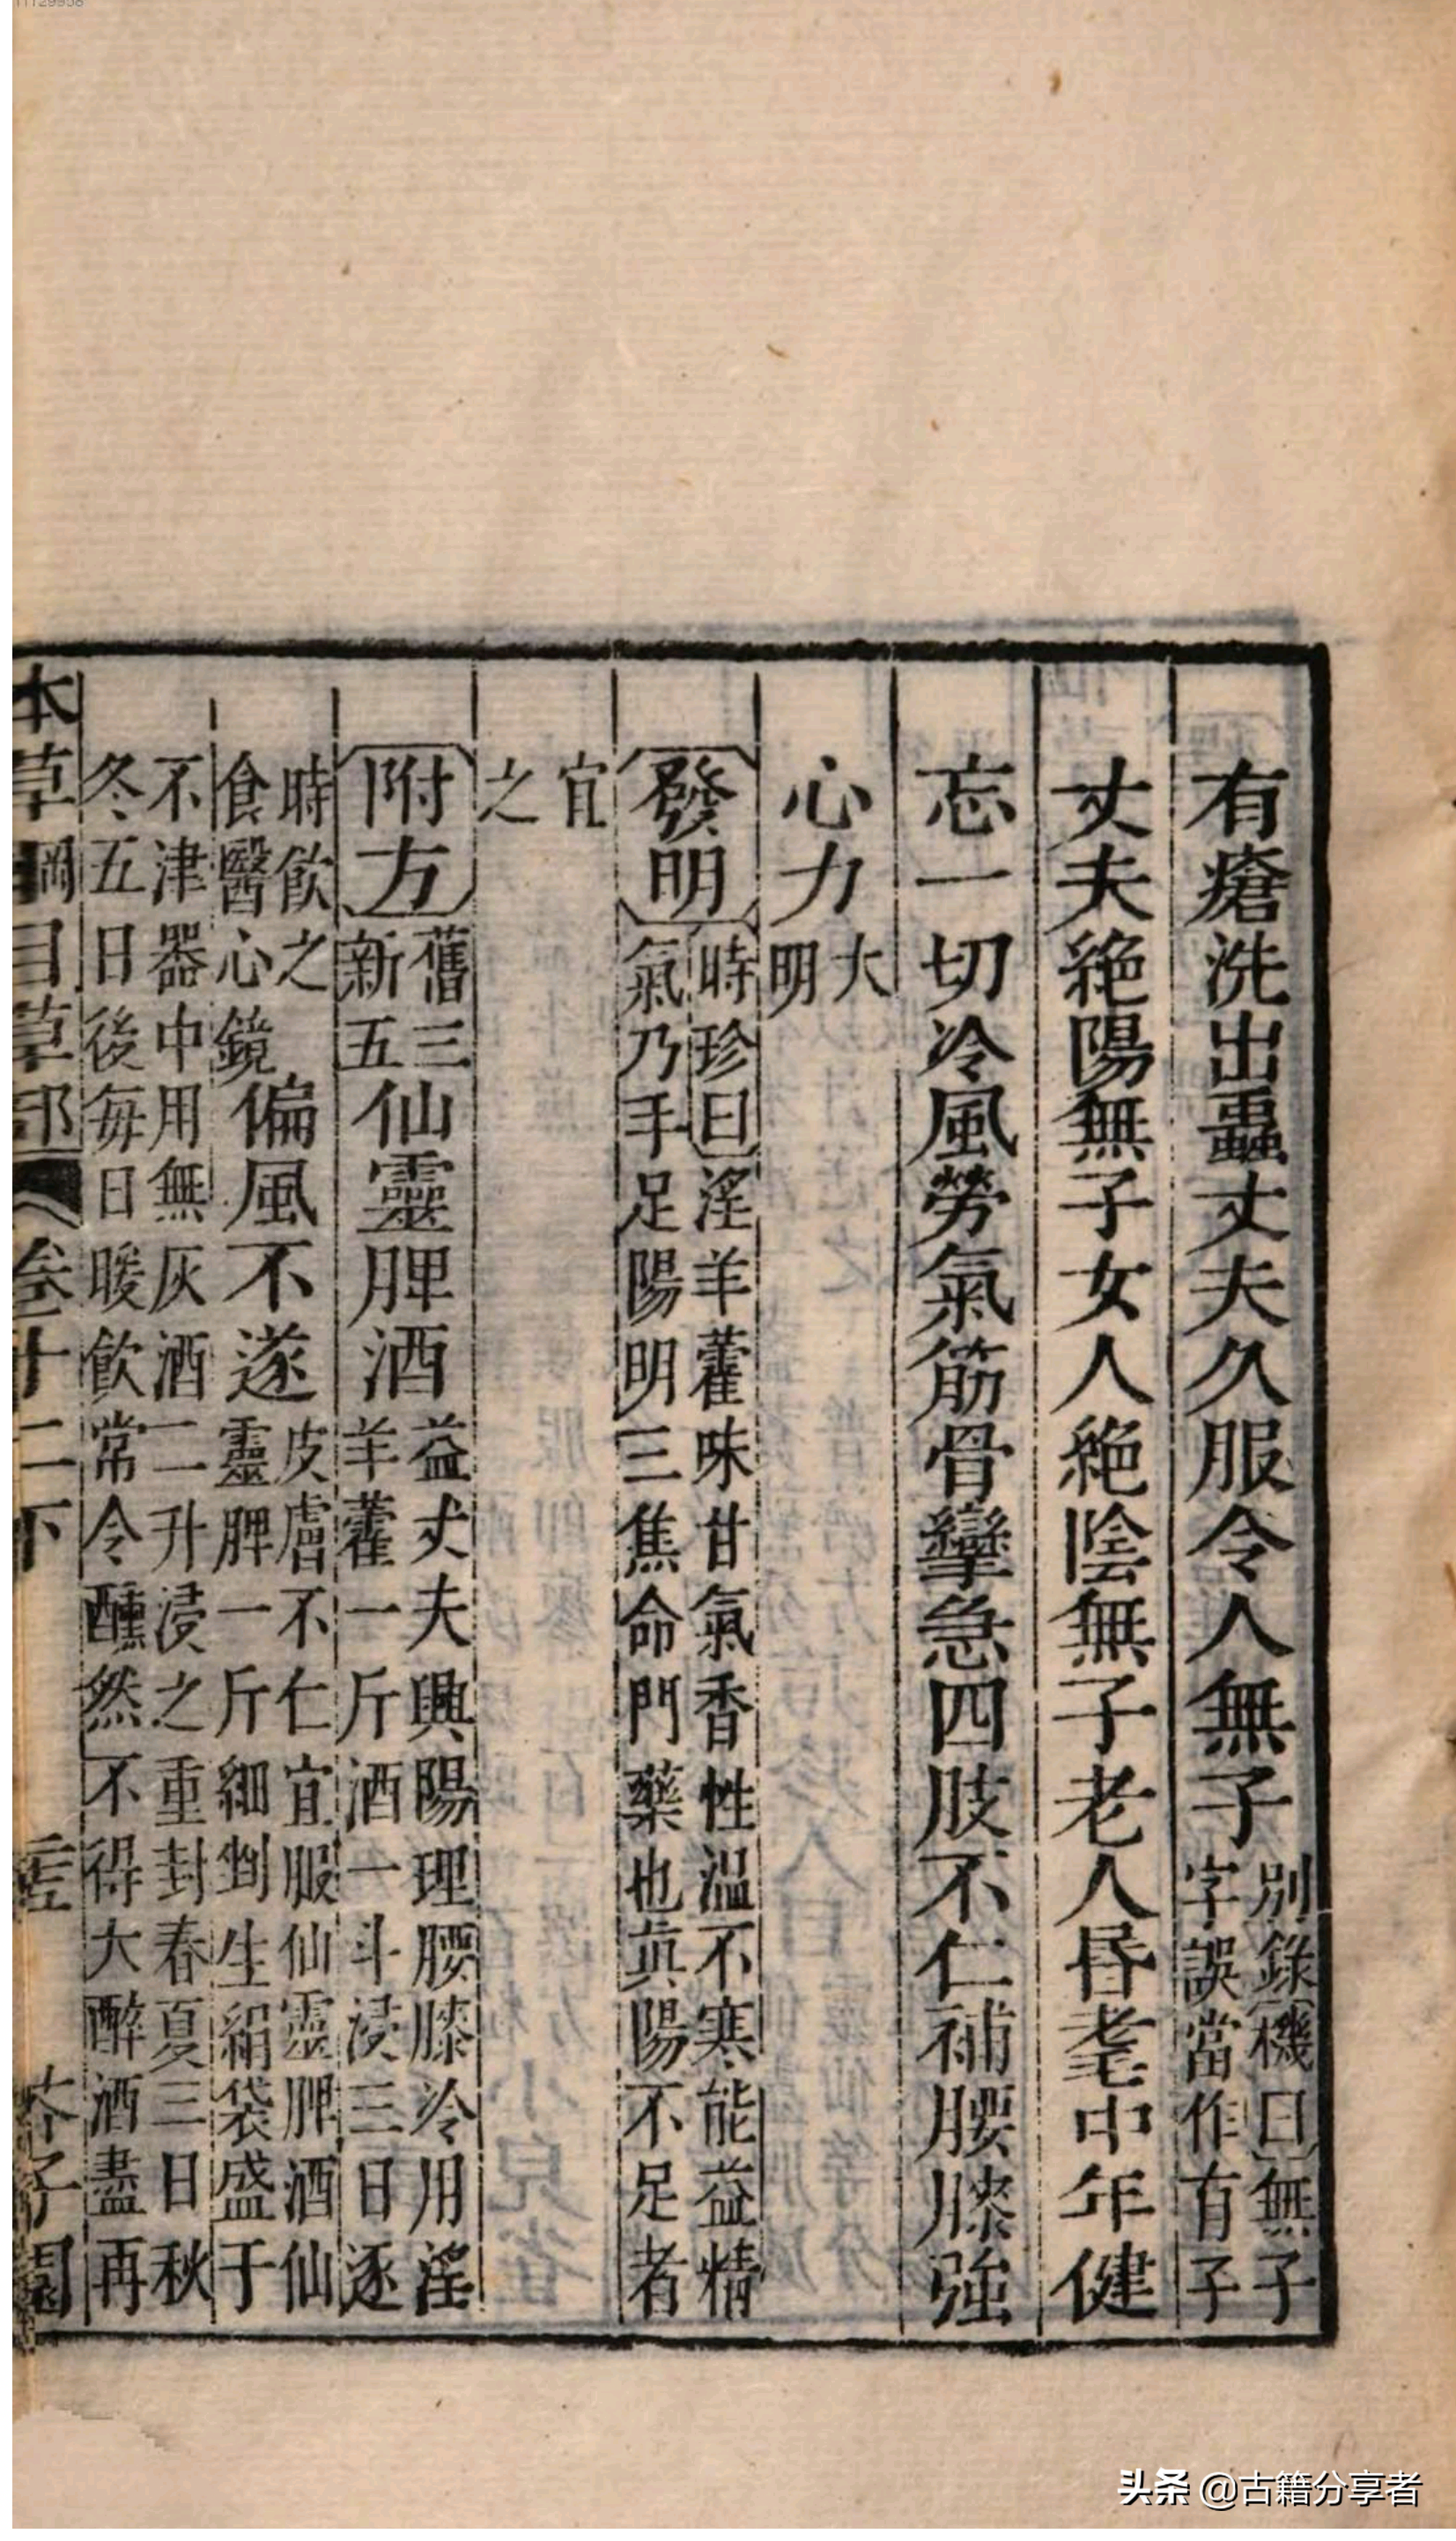 11129958
有瘡洗出蟲丈夫久服令人無子別錄機曰無子字誤當作有子
丈夫絶陽無子女人絶陰無子老人昏耄中年健
忘一切冷風勞氣筋骨攣急四肢不仁補腰膝強
心力大明
發明時珍曰淫羊藿味甘氣香性溫不寒能益精氣乃手足陽明三焦命門藥也真陽不足者
宜之
附方舊三新五仙靈脾酒益丈夫興陽理腰膝冷用淫羊藿一斤酒一斗浸三日逐
時飲之食醫心鏡偏風不遂皮膚不仁宜服仙靈脾酒仙靈脾一斤細剉生絹袋盛于
不津器中用無灰酒二升浸之重封春夏三日秋冬五日後每日暖飲常令醺然不得大醉酒盡再
本草綱目草部卷十二下 芥子園
头条 @古籍分享者